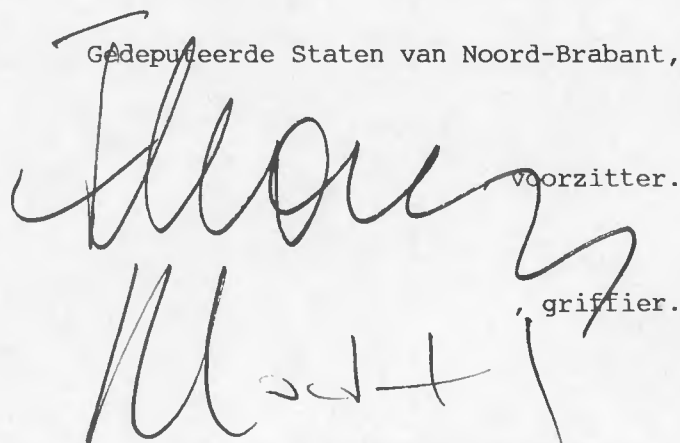 Gedeputeerde Staten van Noord-Brabant,
voorzitter.
, griffier.